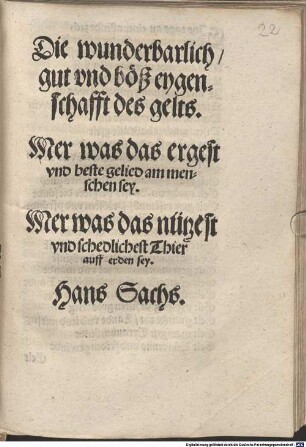 22
Die wunderbarlich /
gut vnd böß eygen-
schafft des gelts.
Mer was das ergest
vnd beste gelied am men-
schen sey.
Mer was das nützest
vnd schedlichest Thier
auff erden sey.
Hans Sachs.